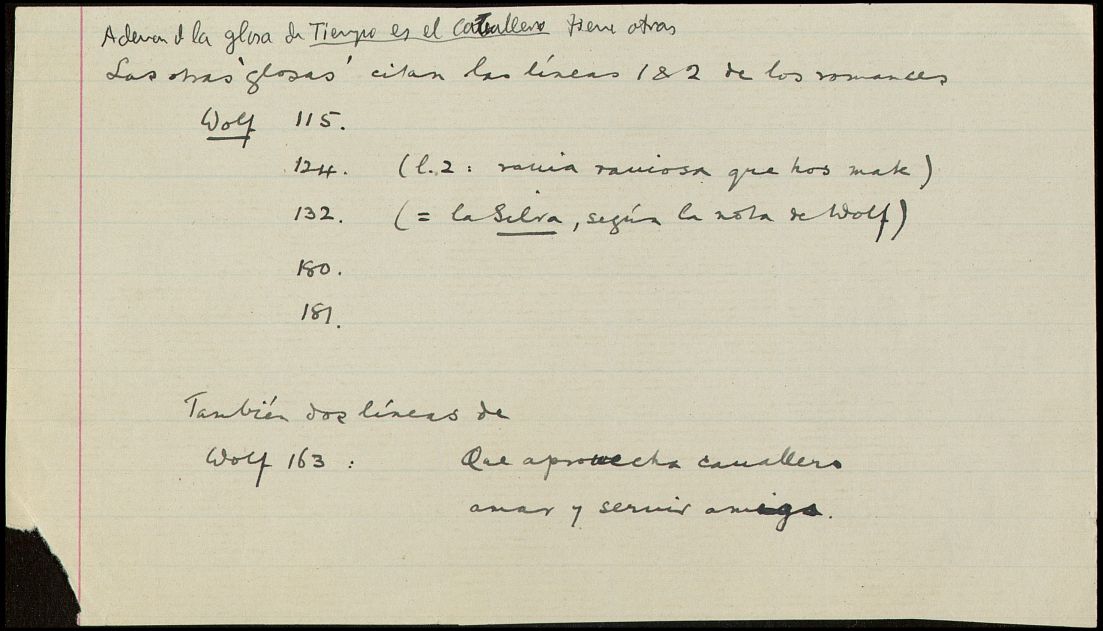 Ademas d la glosa de Tiempo es el Cavallero tiene otras
Las otras 'glosas' citan las líneas 1 & 2 de los romances
Wolf 115.
124. (l. 2 : ravia raviosa que hos mate)
132. (= la Silva, según la nota de Wolf)
180.
181.
También dos líneas de
Wolf 163 : Que aprouecha cauallero
amar y seruir